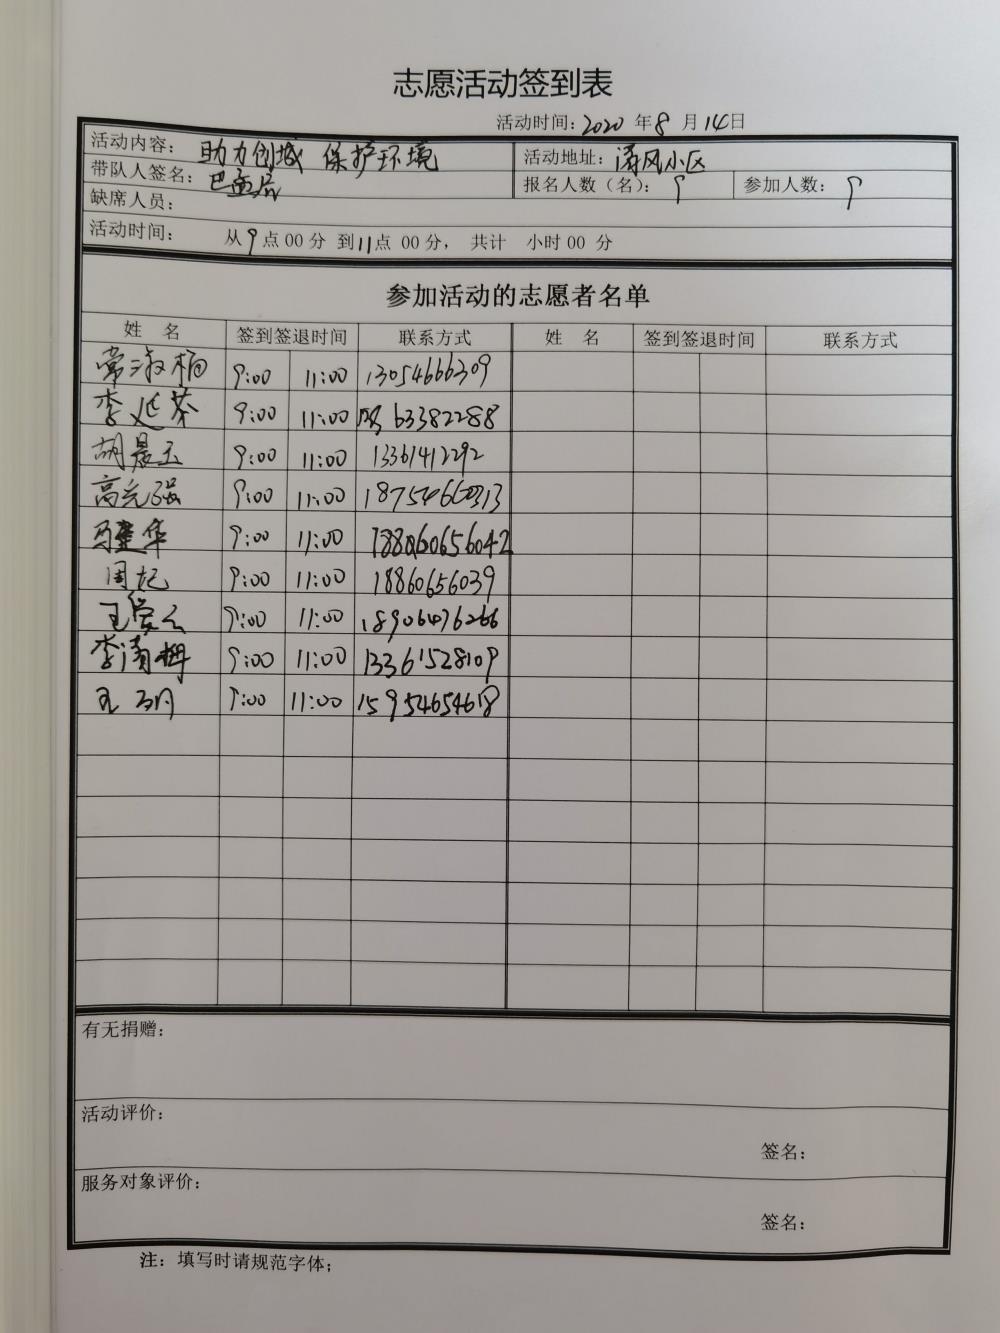 志愿活动签到表
活动时间：2020 年 8 月 14日
活动内容： 助力创城 保护环境 活动地址：清风小区
带队人签名： 报名人数（名）： 9 参加人数： 9
缺席人员：
活动时间： 从 9 点 00 分 到 11 点 00 分， 共计 小时 00 分
参加活动的志愿者名单
姓 名 签到签退时间 联系方式 姓 名 签到签退时间 联系方式
常淑梅 9:00 11:00 13054666309
李延芬 9:00 11:00 63382288
胡晨玉 9:00 11:00 13361412292
高光强 9:00 11:00 18754660313
马建华 9:00 11:00 18860656042
周妃 9:00 11:00 18860656039
王爱云 9:00 11:00 18906476266
李清梅 9:00 11:00 13361528109
王 9:00 11:00 15954654618
有无捐赠：
活动评价：
签名：
服务对象评价：
签名：
注：填写时请规范字体；